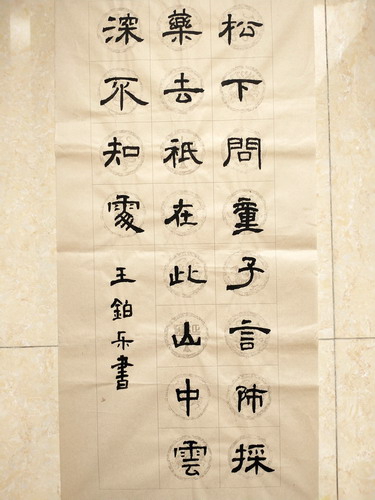 松下問童子言師採
藥去祇在此山中雲
深不知處
王鉑乐書